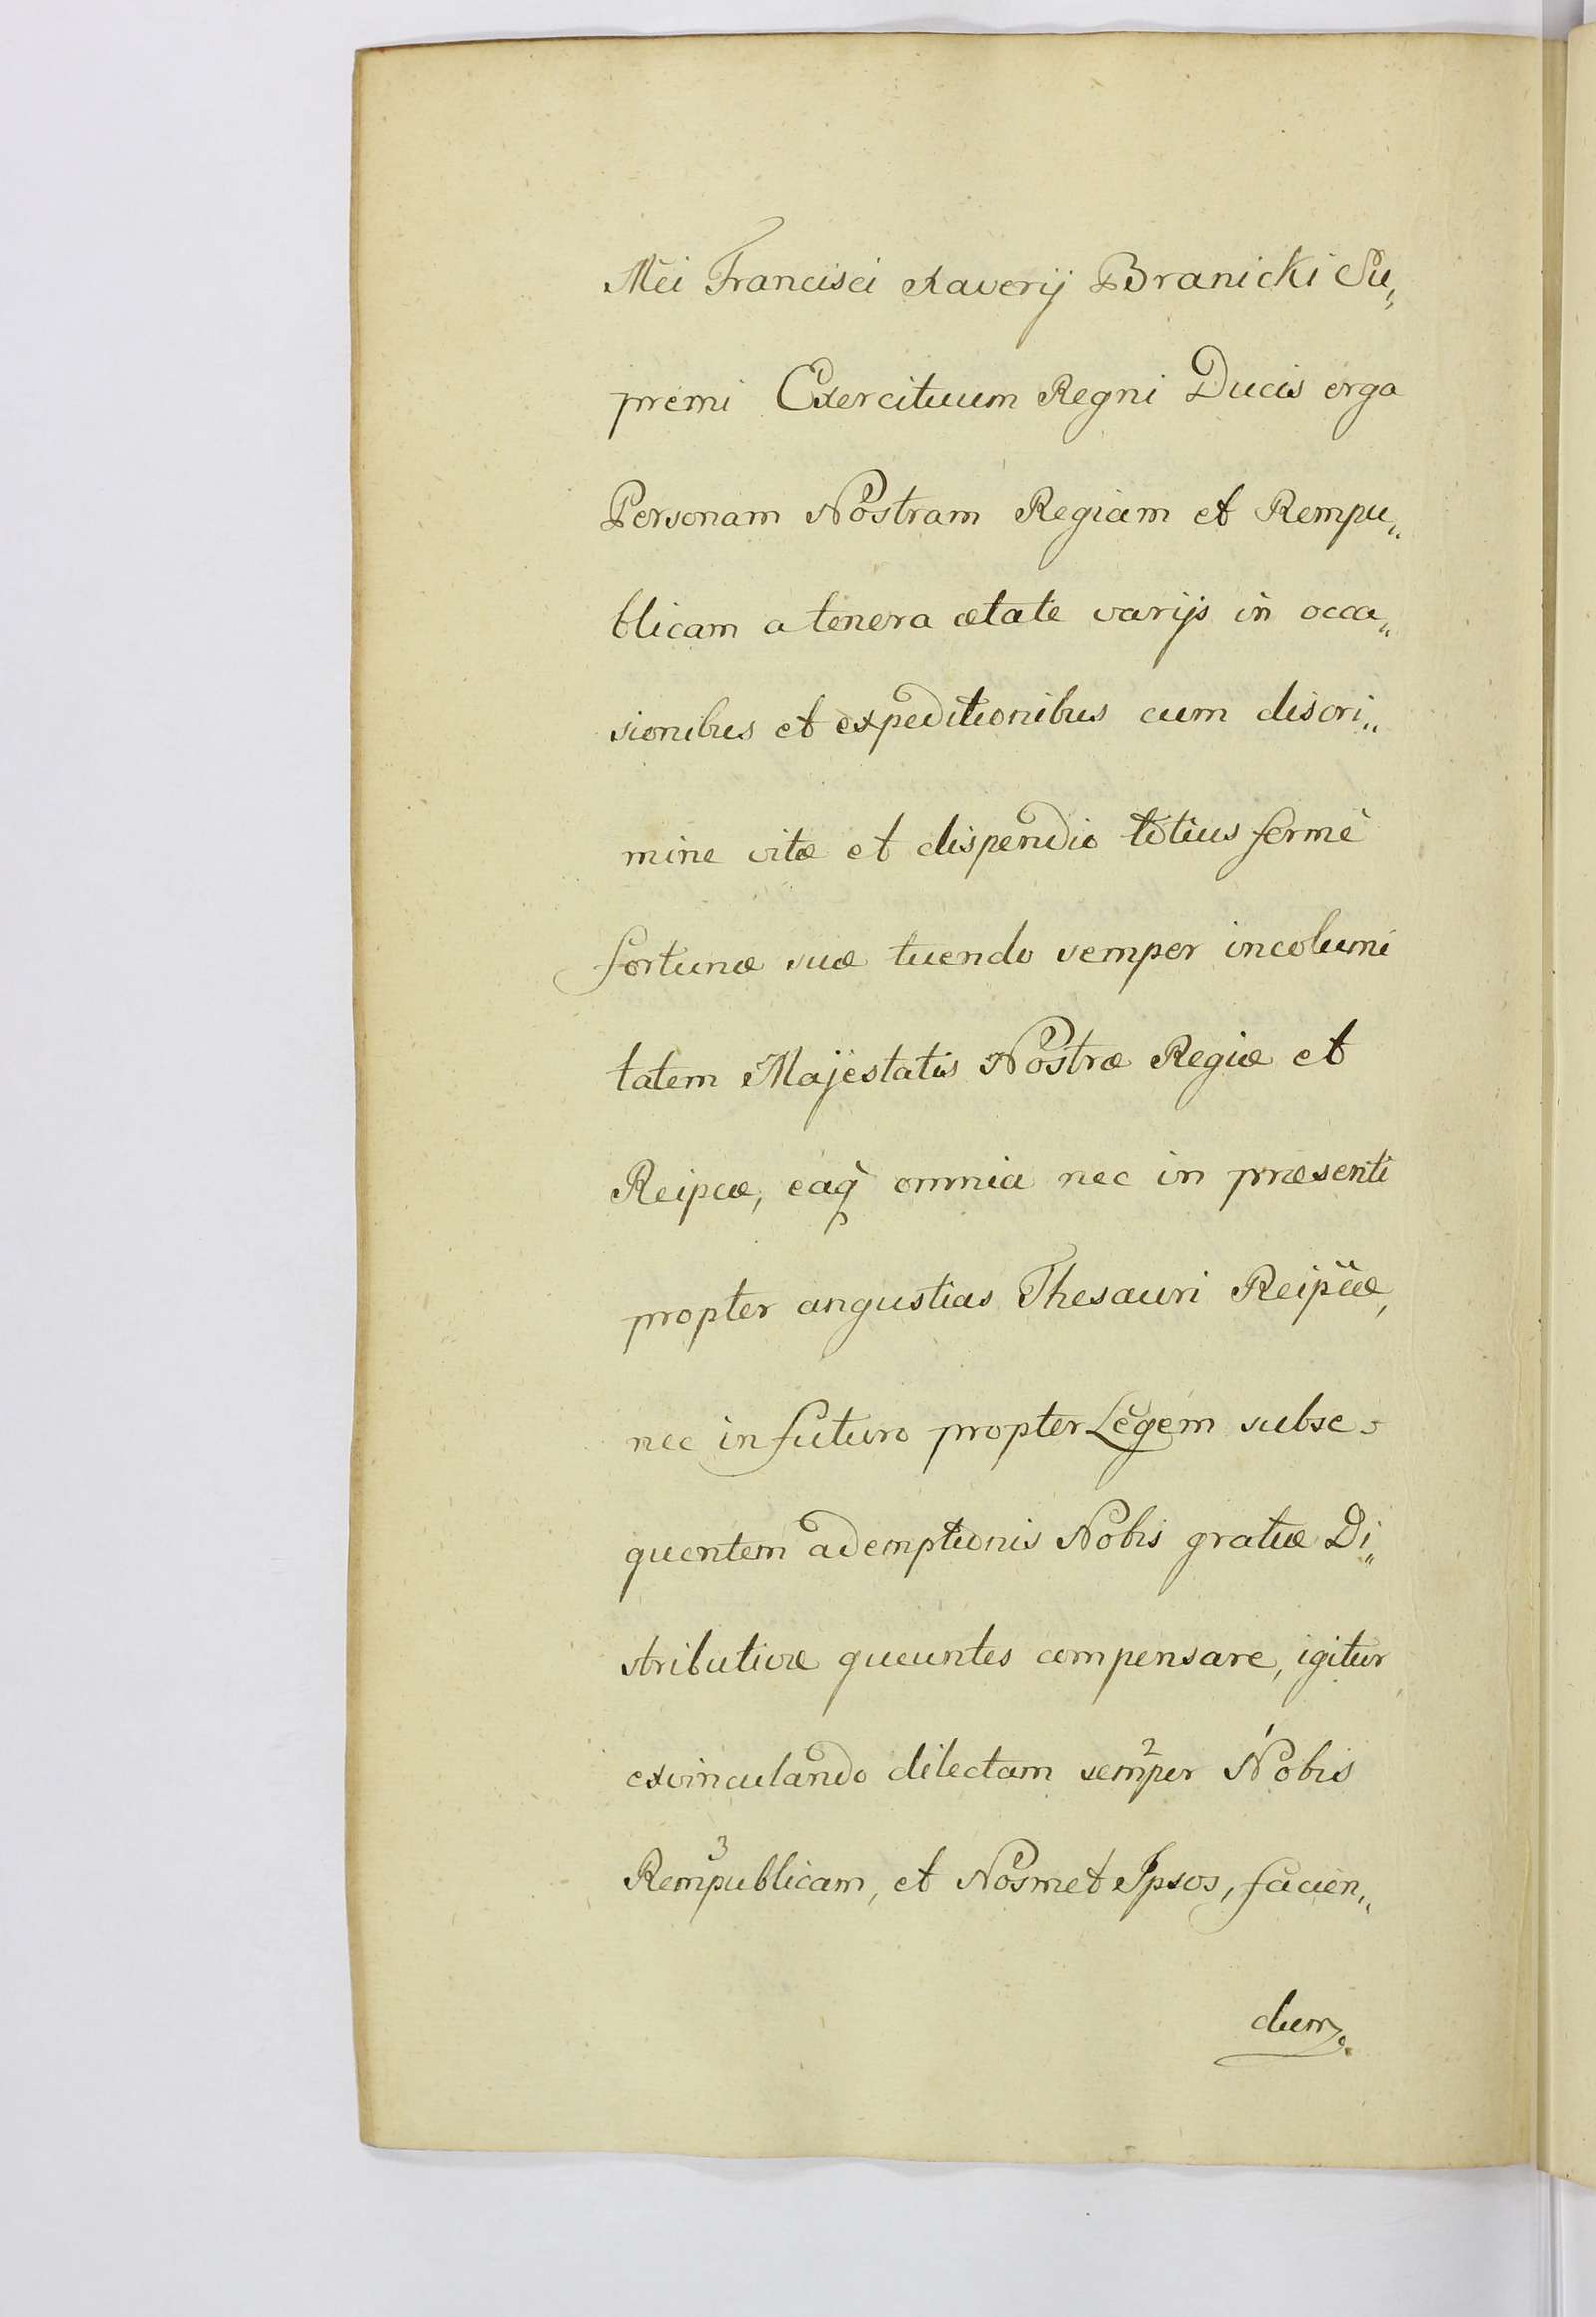 Mei Francisci Xaverij Branicki Su„
premi Exercituum Regni Ducis erga
Personam Nostram Regiam et Rempu„
blicam a tenera ætate varijs in occa„
sionibus et expeditionibus cum discri„
mine vitæ et dispendio totius fermè
fortunæ suæ tuendo semper incolumi
tatem Majestatis Nostræ Regiæ et
Reipcæ, eaq̀ omnia nec in præsenti
propter angustias Thesauri Reipcæ,
nec in futuro propter Legem subse-
quentem ademptionis Nobis gratiæ Di„
stributivæ queuntes compensare, igitur
exvinculando dilectam sem²per ¹Nobis
Rem³publicam, et Nosmet Ipsos, facien„
dum.